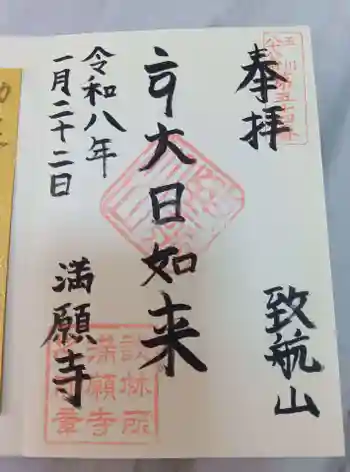 奉拝
致航山
大日如来
満願寺
令和八年
一月二十二日
談林所
満願寺